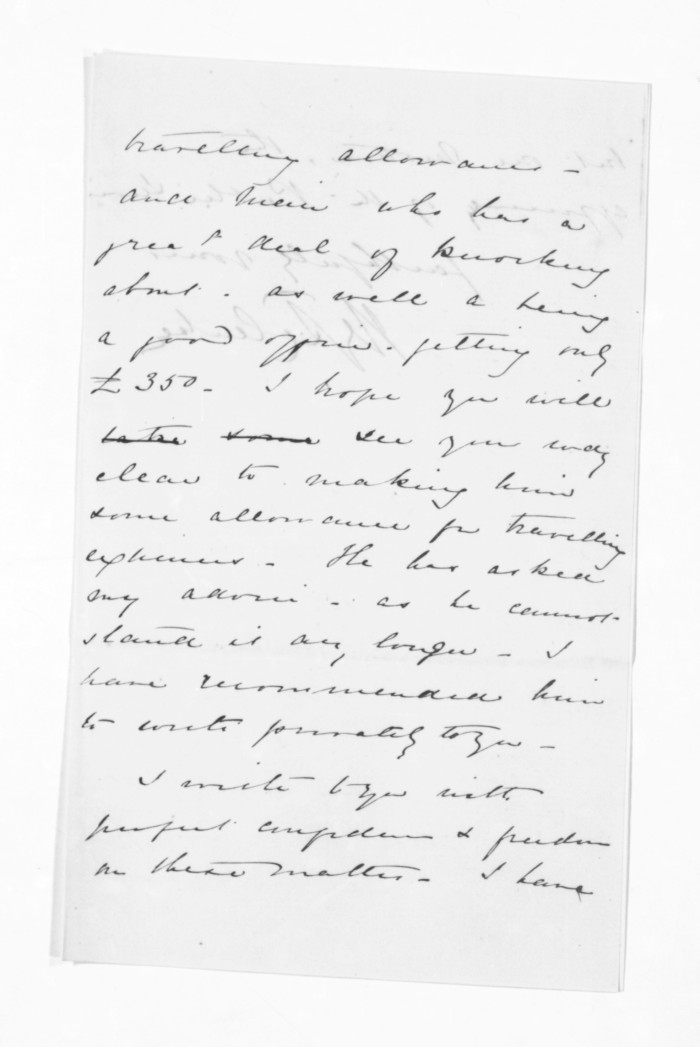 travelling allowance -
and Mair who has a
great deal of knocking
about - as well a being
a good officer - getting only
£350 - I hope you will
take some see your way
clear to making him
some allowance for travelling
expenses - He has asked
my advice - as he cannot
stand it any longer - I
have recommended him
to write privately to you -
I write to you with
perfect confidence & freedom
on these matters - I have